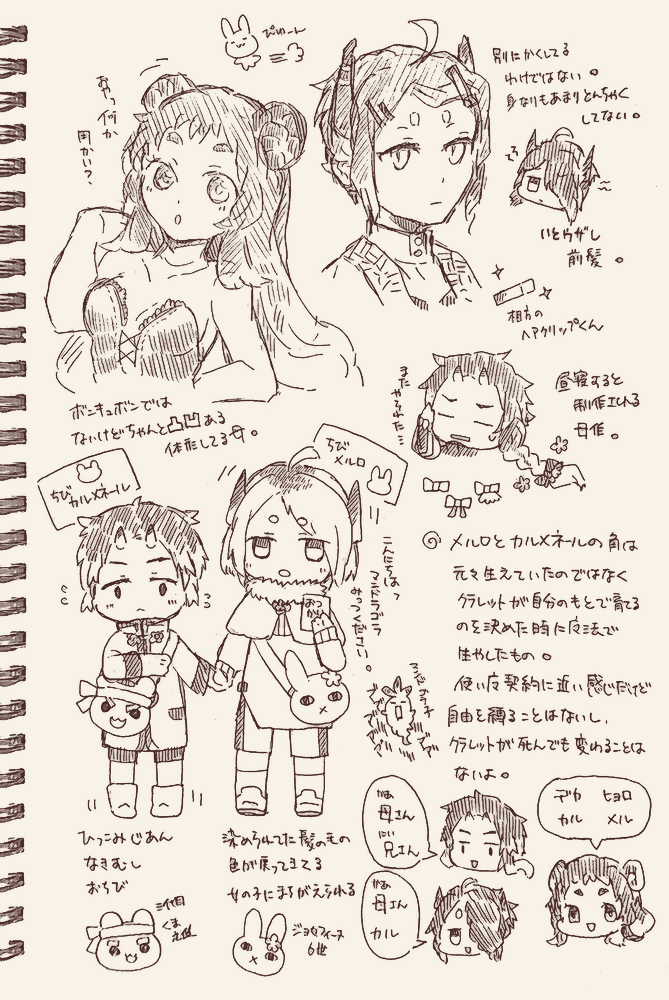 ぴゅーん
おやっ何か
用かい？
別にかくしてる
わけではない。
身なりもあまりとんちゃく
してない。
いとウザし
前髪。
相方の
ヘアクリップくん
ボンキュボンでは
ないけどちゃんと凸凹ある
体形してる母。
またやられた…
昼寝すると
制作される
母作。
ちび
カルメネール
ちび
メルロ
こんにちはっ
マンドラゴラ
みってください。
おつかい
◎メルロとカルメネールの角は
元々生えていたのではなく
クラレットが自分のもとで育てる
のを決めた時に魔法で
生やしたもの。
使い魔契約に近い感じだけど
自由を縛ることはないし、
クラレットが死んでも変わることは
ないよ。
ひっこみじあん
なきむし
おちび
三代目
くま
染められてた髪のもの
色が戻ってきてる
女の子にまちがえられる
ジョセフィーヌ
6世
かあ
母さん
にい
兄さん
かあ
母さん
カル
デカ ヒョロ
カル メル